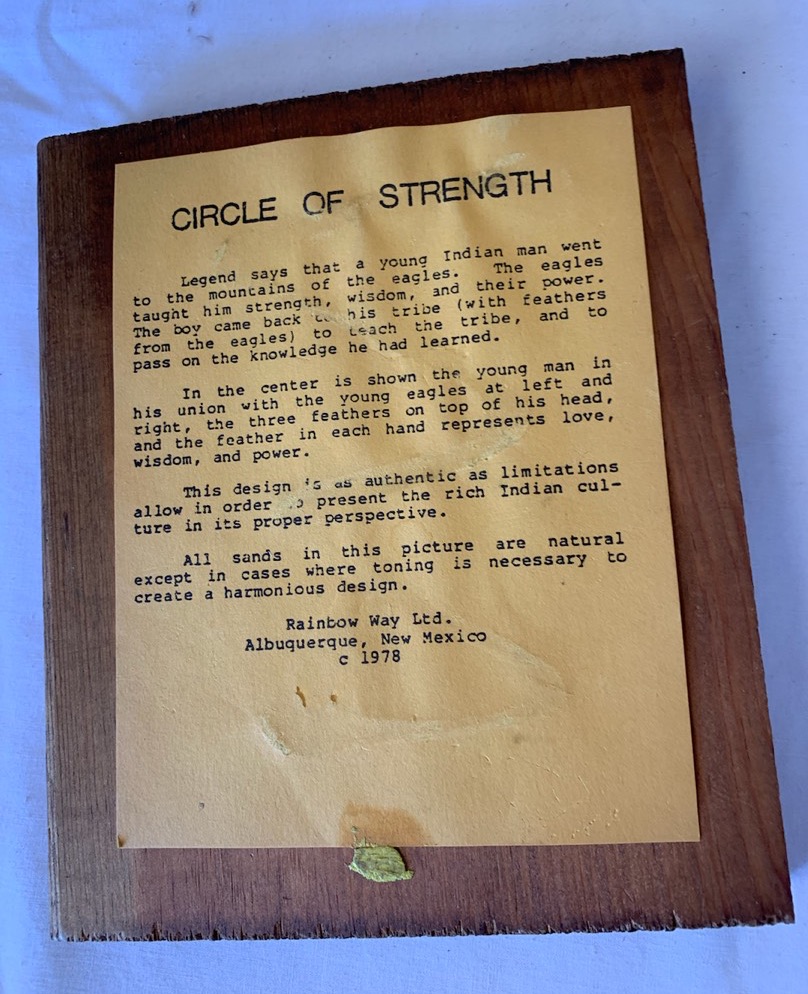 CIRCLE OF STRENGTH
Legend says that a young Indian man went
to the mountains of the eagles. The eagles
taught him strength, wisdom, and their power.
The boy came back his tribe (with feathers
from the eagles) to teach the tribe, and to
pass on the knowledge he had learned.
In the center is shown the young man in
his union with the young eagles at left and
right, the three feathers on top of his head,
and the feather in each hand represents love,
wisdom, and power.
This design is as authentic as limitations
allow in order present the rich Indian cul-
ture in its proper perspective.
All sands in this picture are natural
except in cases where toning is necessary to
create a harmonious design.
Rainbow Way Ltd.
Albuquerque, New Mexico
c 1978